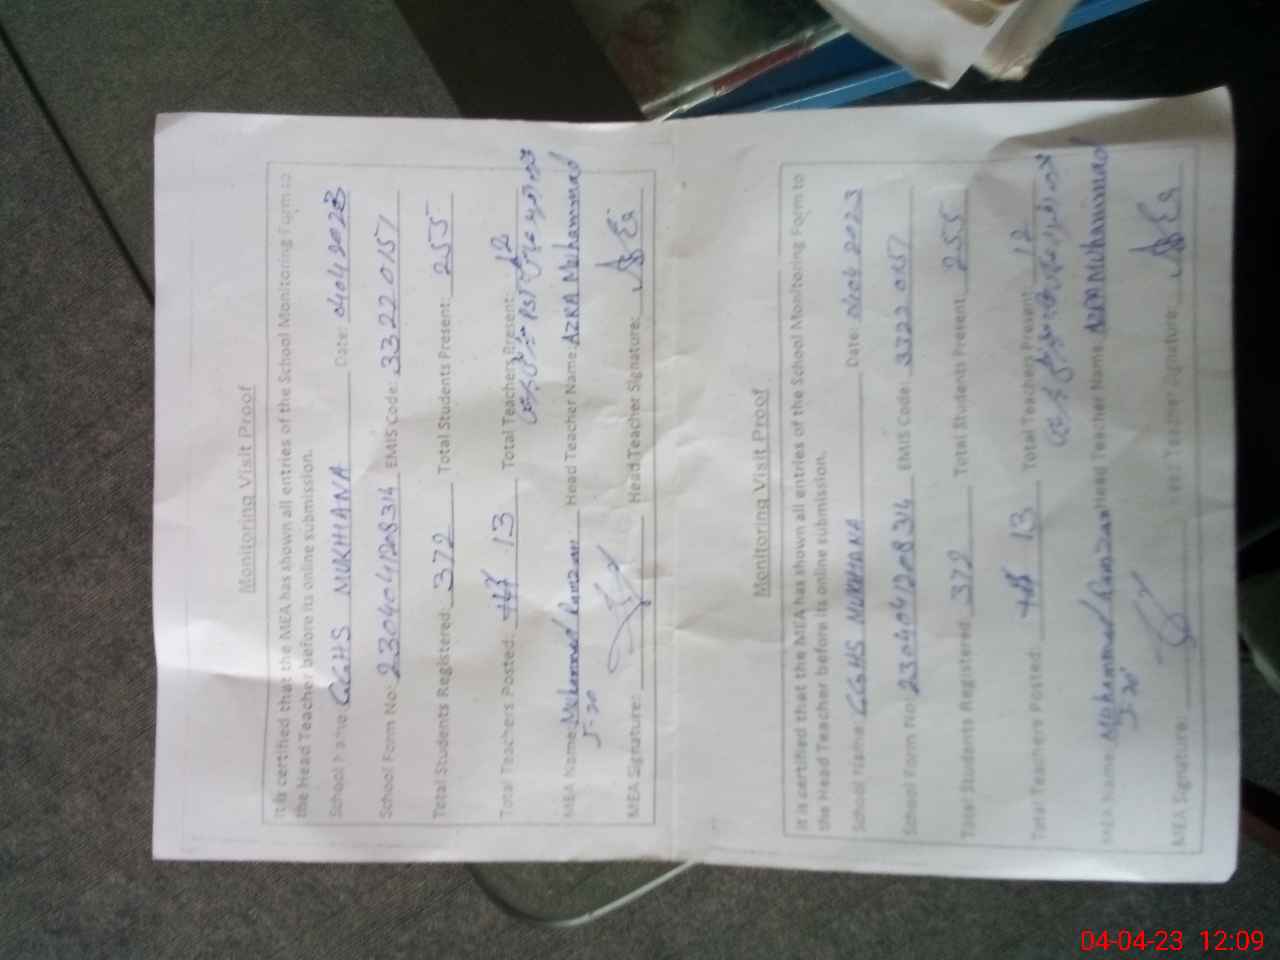 Monitoring Visit Proof
It is certified that the MEA has shown all entries of the School Monitoring Form to
the Head Teacher before its online submission.
School Name: GGHS MUKHANA Date: 04042023
School Form No: 2304041208314 EMIS Code: 33220157
Total Students Registered: 372 Total Students Present: 255
Total Teachers Posted: 13 Total Teachers Present: 12
MEA Name: Muhammad Ramzan Head Teacher Name: AZRA Muhammad
J-20
MEA Signature: Head Teacher Signature:
Monitoring Visit Proof
It is certified that the MEA has shown all entries of the School Monitoring Form to
the Head Teacher before its online submission.
School Name: GGHS MUKHANA Date: 0404 2023
School Form No: 2304041208314 EMIS Code: 33220157
Total Students Registered: 372 Total Students Present: 255
Total Teachers Posted: 13 Total Teachers Present: 12
MEA Name: Muhammad Ramzan Head Teacher Name: AZRA Muhammad
J-20
MEA Signature: Head Teacher Signature:
04-04-23 12:09